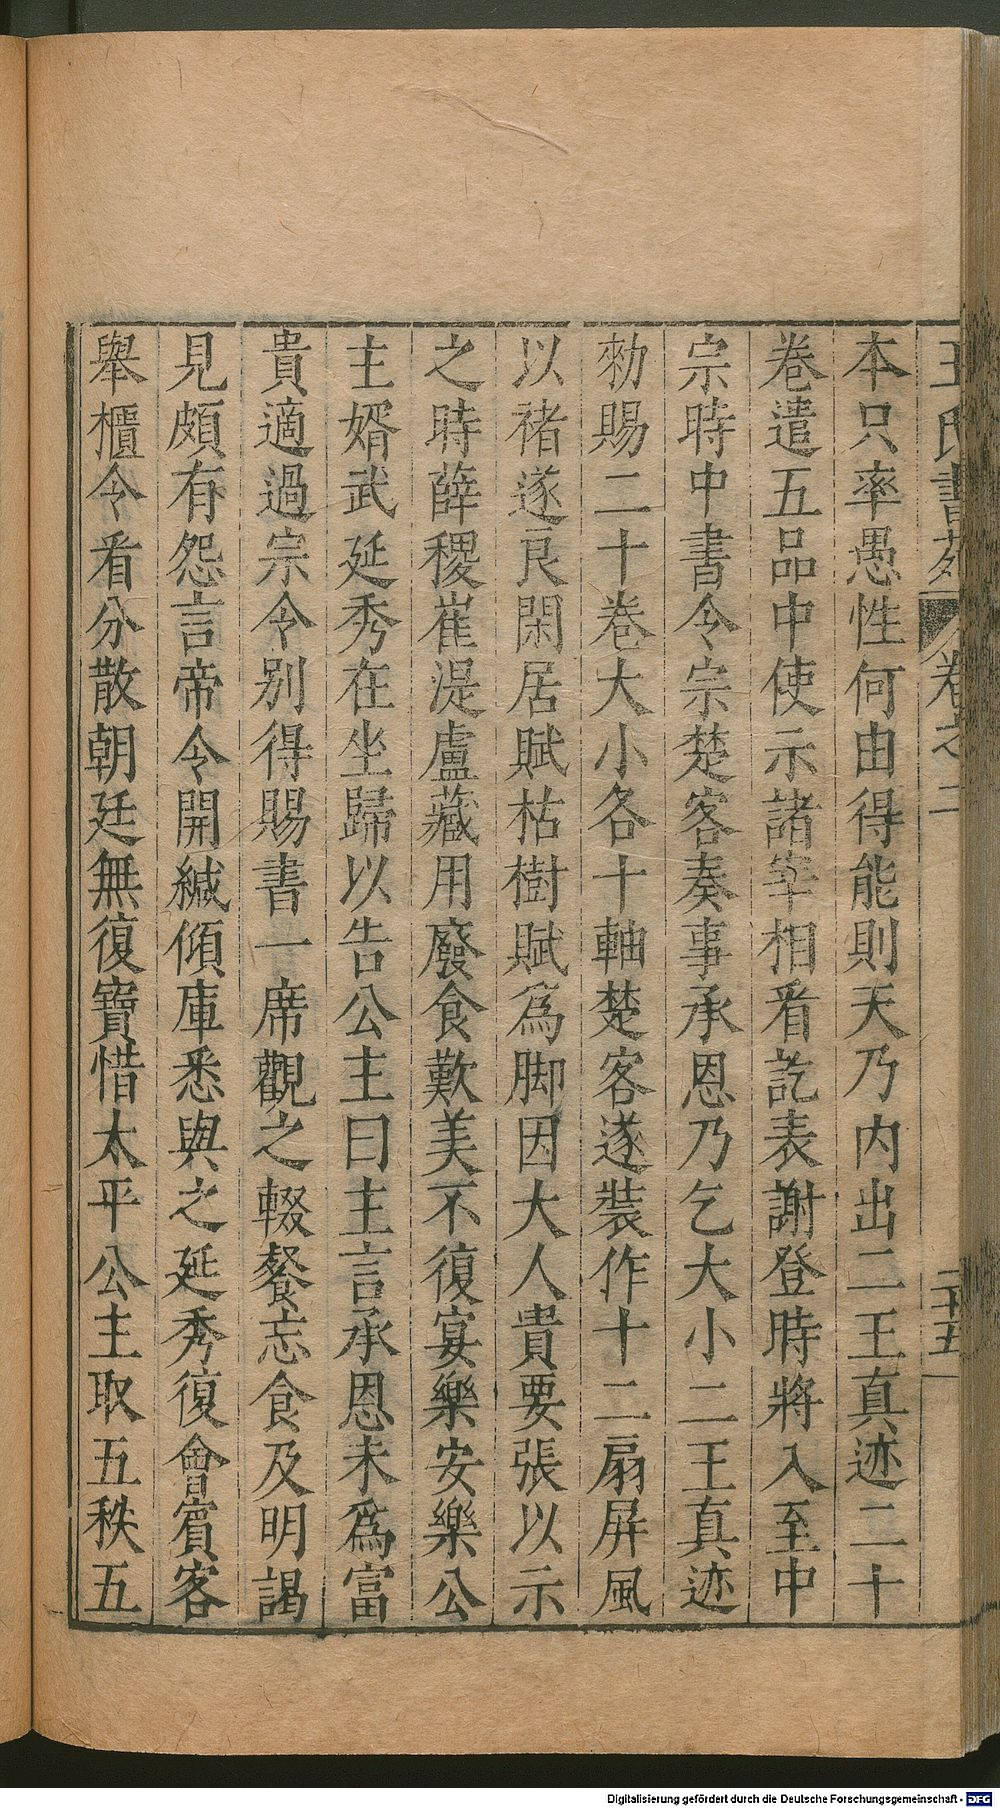 王氏書苑 卷之二 二十五
本只率愚性何由得能則天乃内出二王真迹二十
卷遣五品中使示諸宰相看訖表謝登時將入至中
宗時中書令宗楚客奏事承恩乃乞大小二王真迹
勑賜二十卷大小各十軸楚客遂裝作十二扇屏風
以褚遂良閑居賦枯樹賦爲脚因大人貴要張以示
之時薛稷崔湜盧藏用廢食歎美不復宴樂安樂公
主婿武延秀在坐歸以告公主曰主言承恩未爲富
貴適過宗令别得賜書一席觀之輟餐忘食及明謁
見頗有怨言帝令開緘傾庫悉與之延秀復會賓客
舉櫃令看分散朝廷無復寶惜太平公主取五秩五
Digitalisierung gefördert durch die Deutsche Forschungsgemeinschaft - DFG